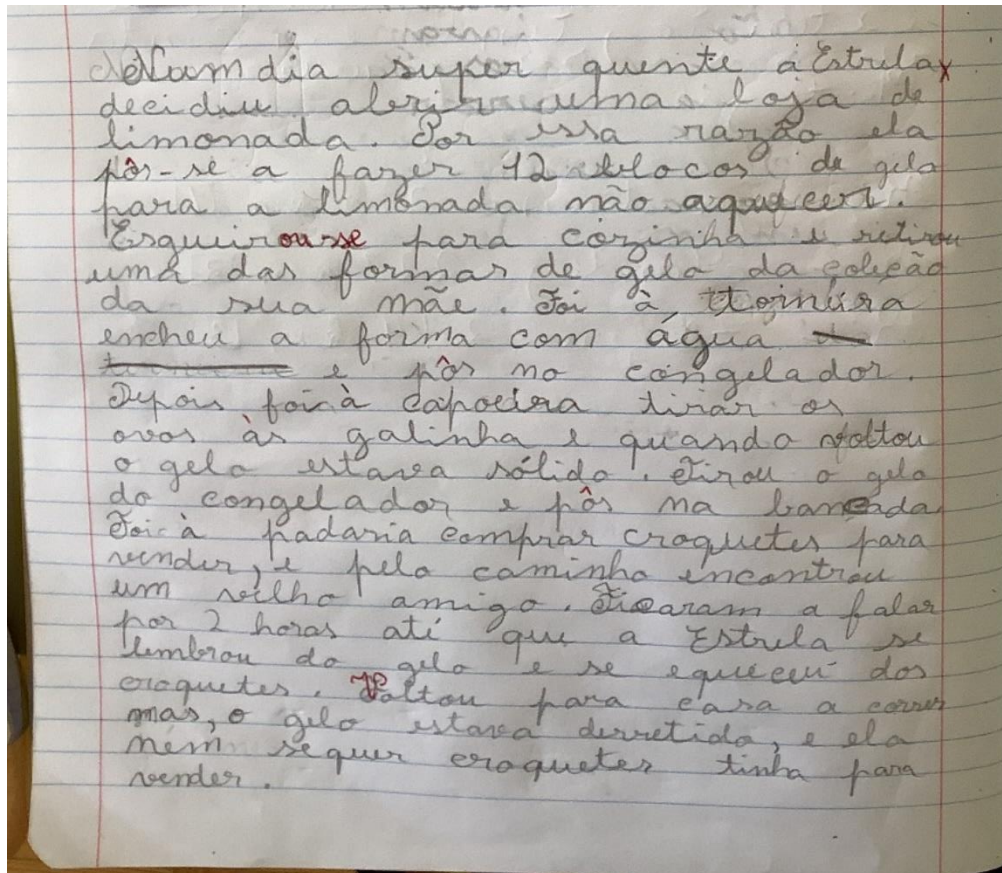 Num dia super quente a Estrela
decidiu abrir uma loja de
limonada. Por essa razão ela
pôs-se a fazer 12 blocos de gelo
para a limonada não aquecer.
Esgueirou-se para cozinha e retirou
uma das formas de gelo da coleção
da sua mãe. Foi à torneira
encheu a forma com água
e pôs no congelador.
Depois foi à capoeira tirar os
ovos às galinha e quando voltou
o gelo estava sólido. Tirou o gelo
do congelador e pôs na bancada
Foi à padaria comprar croquetes para
vender, e pelo caminho encontrou
um velho amigo. Ficaram a falar
por 2 horas até que a Estrela se
lembrou do gelo e se equeceu dos
croquetes. Voltou para casa a correr
mas, o gelo estava derretido, e ela
nem sequer croquetes tinha para
vender.